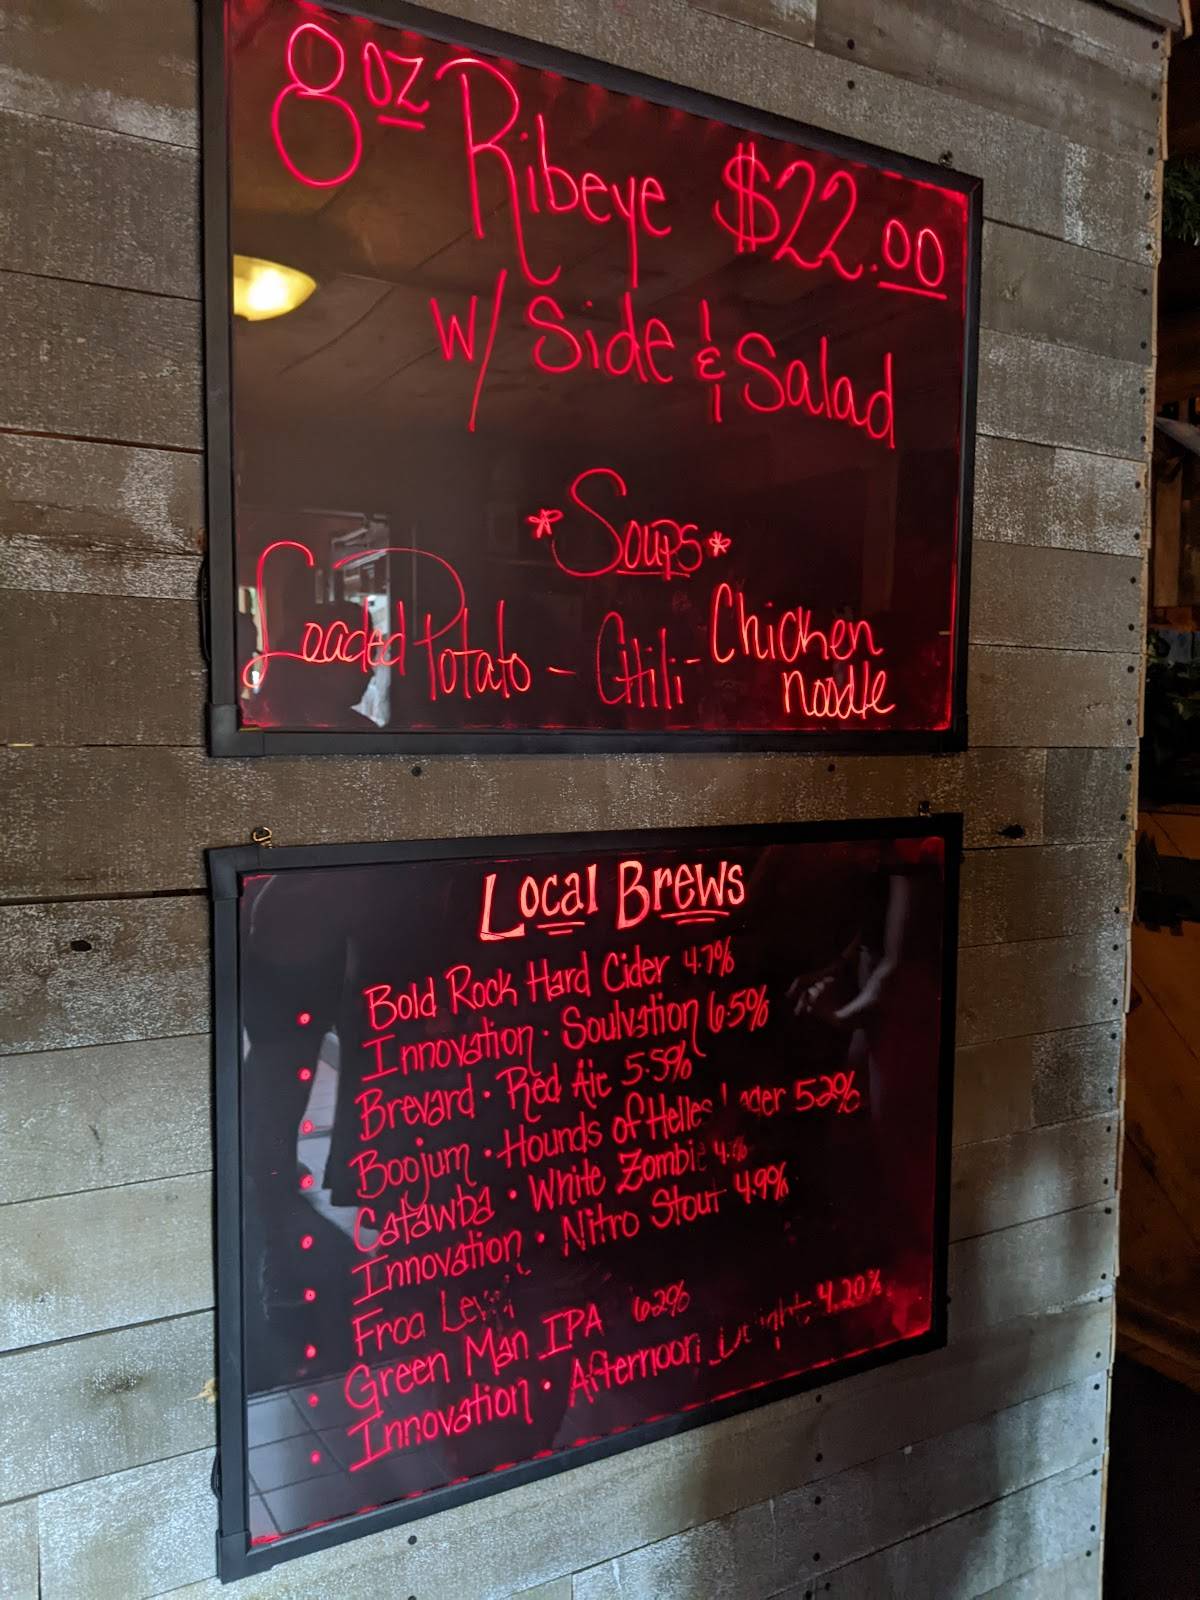 8 oz Ribeye $22.00
w/ Side & Salad
*Soups*
Loaded Potato - Chili - Chicken
noodle
Local Brews
• Bold Rock Hard Cider 4.7%
• Innovation • Soulvation 6.5%
• Brevard • Red Ale 5.5%
• Boojum • Hounds of Helles Lager 5.2%
• Catawba • White Zombie
• Innovation • Nitro Stout 4.9%
• Frog
• Green Man IPA 6.2%
• Innovation • Afternoon 4.20%